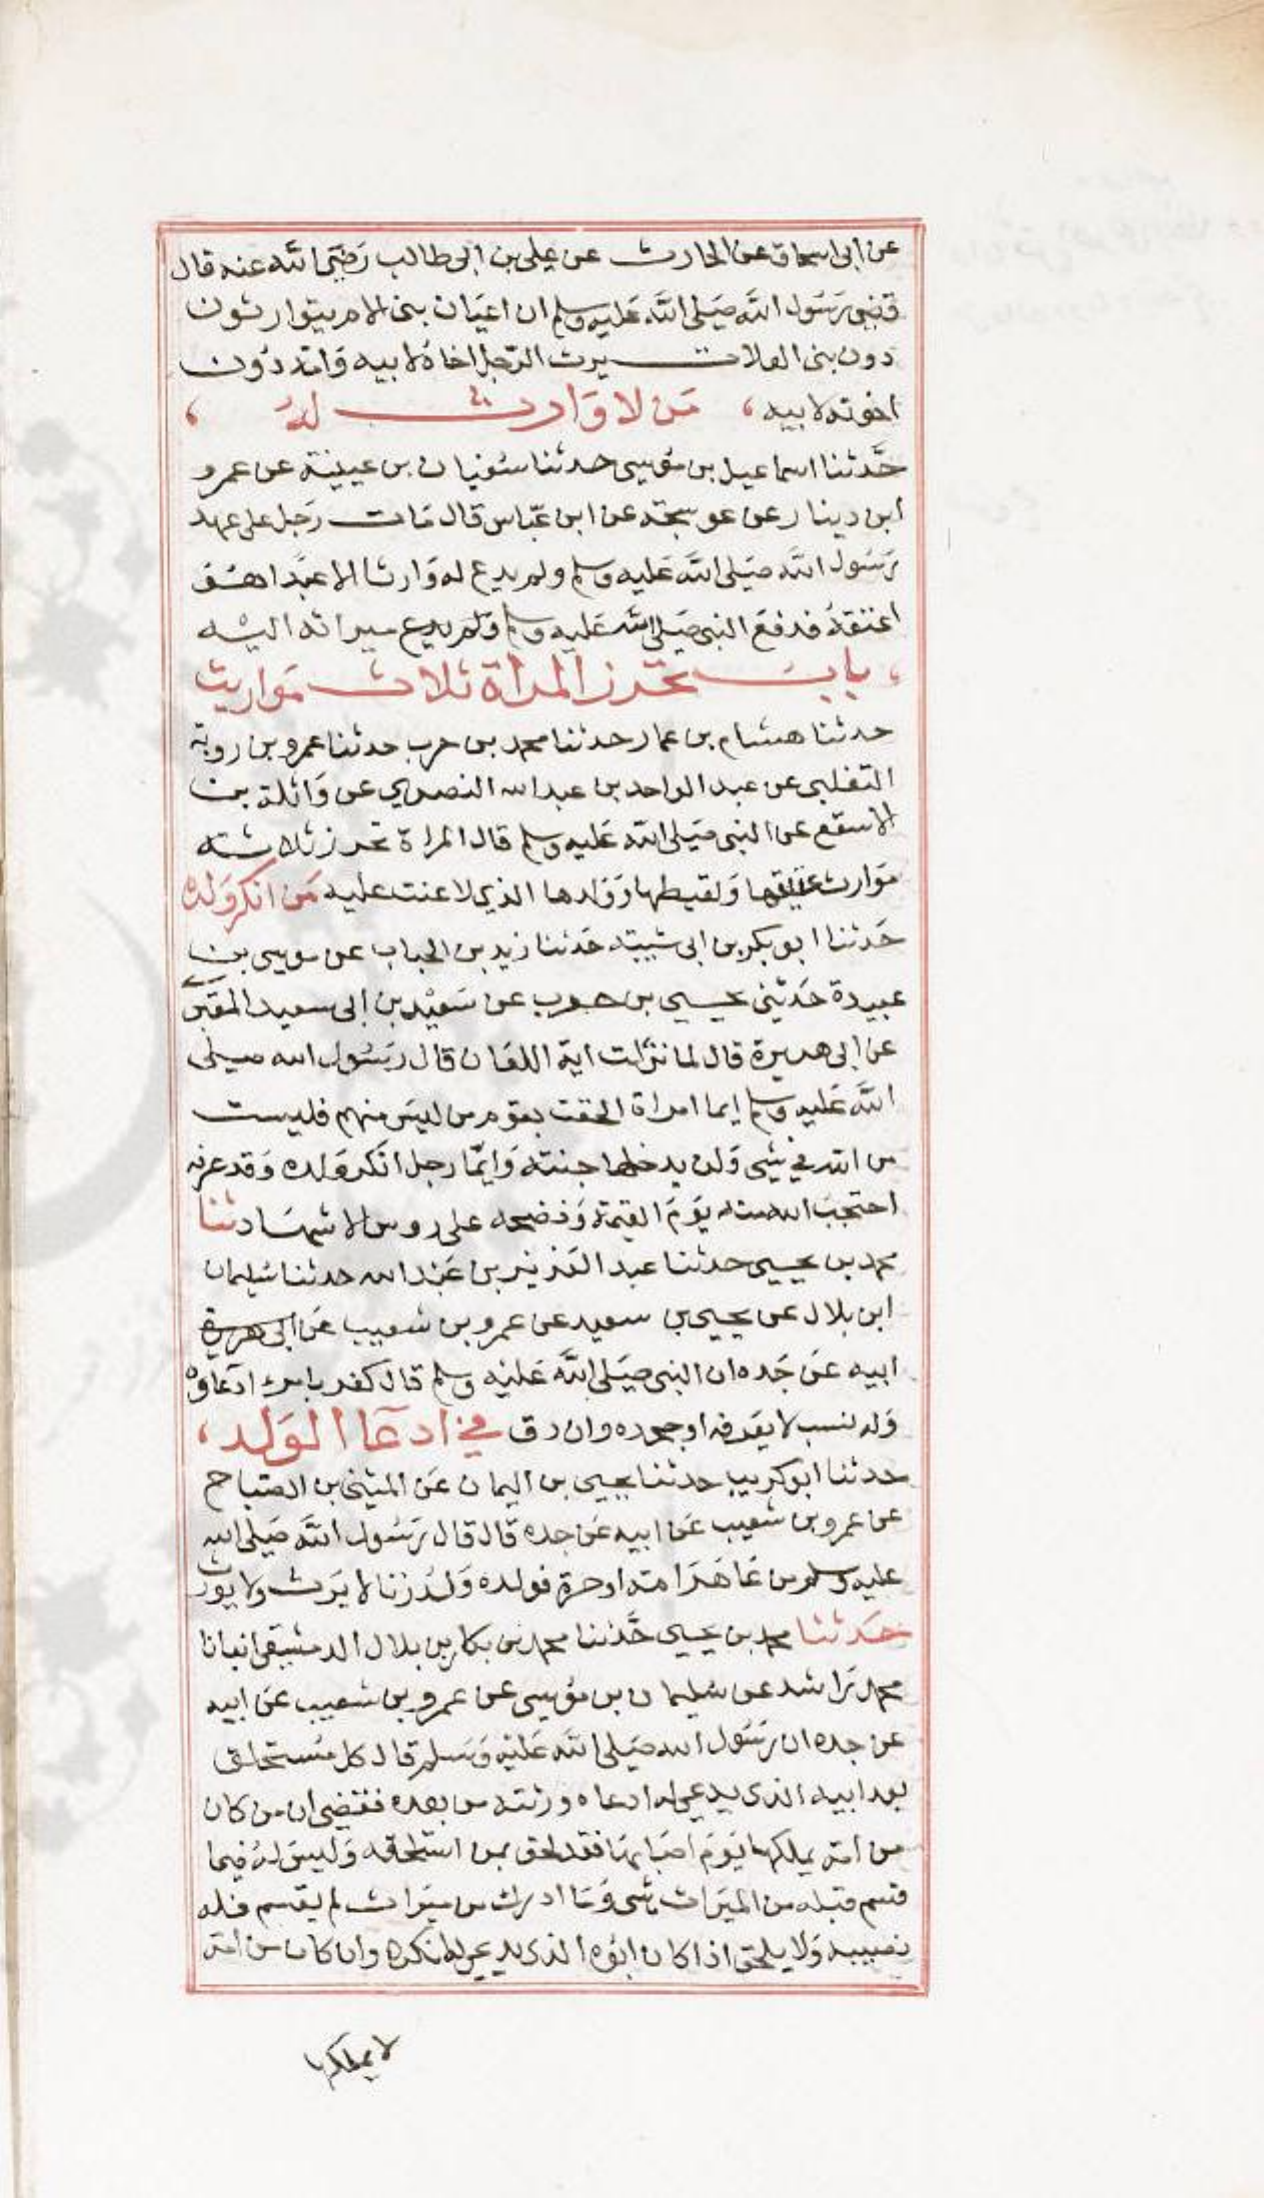 عن ابى اسحاق عن الحارث عن على بن ابى طالب رضى الله عنه قال
قضى رسول الله صلى الله عليه وسلم ان اعيان بنى الام يتوارثون
دون بنى العلات يرث الرجل اخاه لابيه وامه دون
اخوته لابيه ، من لا وارث له ،
حدثنا اسماعيل بن موسى حدثنا سفيان بن عيينة عن عمرو
ابن دينار عن عوسجة عن ابن عباس قال مات رجل على عهد
رسول الله صلى الله عليه وسلم ولم يدع له وارثا الا عبدا هو
اعتقه فدفع النبى صلى الله عليه وسلم ولم يدع ميراثه اليه
، باب تحرز المراة ثلاث مواريث
حدثنا هشام بن عمار حدثنا محمد بن حرب حدثنا عمرو بن روبة
التغلبى عن عبد الواحد بن عبد الله النصري عن واثلة بن
الاسقع عن النبى صلى الله عليه وسلم قال المراة تحرز ثلاثة
موارث عتيقها ولقيطها وولدها الذي لاعنت عليه من انكر ولده
حدثنا ابو بكر بن ابى شيبة حدثنا زيد بن الحباب عن موسى بن
عبيدة حدثنى يحيى بن حرب عن سعيد بن ابى سعيد المقبرى
عن ابى هريرة قال لما نزلت اية اللعان قال رسول الله صلى
الله عليه وسلم ايما امراة الحقت بقوم من ليس منهم فليست
من الله في شى ولن يدخلها جنته وايما رجل انكر ولده وقد عرفه
احتجب الله منه يوم القيمة وفضحه على روس الاشهاد ثنا
محمد بن يحيى حدثنا عبد العزيز بن عبد الله حدثنا سليمان
ابن بلال عن يحيى بن سعيد عن عمرو بن شعيب عن ابى هريرة
ابيه عن جده ان النبى صلى الله عليه وسلم قال كفر بامرء ادعاوه
ولد لنسب لا يعرفه او جحوده وان دق في ادعا الولد ،
حدثنا ابو كريب حدثنا يحيى بن اليمان عن المثنى بن الصباح
عن عمرو بن شعيب عن ابيه عن جده قال قال رسول الله صلى الله
عليه وسلم من عاهر امة او حرة فولده ولد زنا لا يرث ولا يورث
حدثنا محمد بن يحيى حدثنا محمد بن بكار بن بلال الدمشقى انبانا
محمد راشد عن سليمان بن موسى عن عمرو بن شعيب عن ابيه
عن جده ان رسول الله صلى الله عليه وسلم قال كل مستحلق
بعد ابيه الذى يدعى له ادعاه ورثته من بعده فقضى ان من كان
من امة يملكها يوم اصابها فقد لحق بمن استلحقه وليس له فيما
قسم قبله من الميراث شى وما ادرك من ميراث لم يقسم فله
نصيبه ولا يلحق اذا كان ابوه الذى يدعى له انكره وان كان من امة
لا يملكها